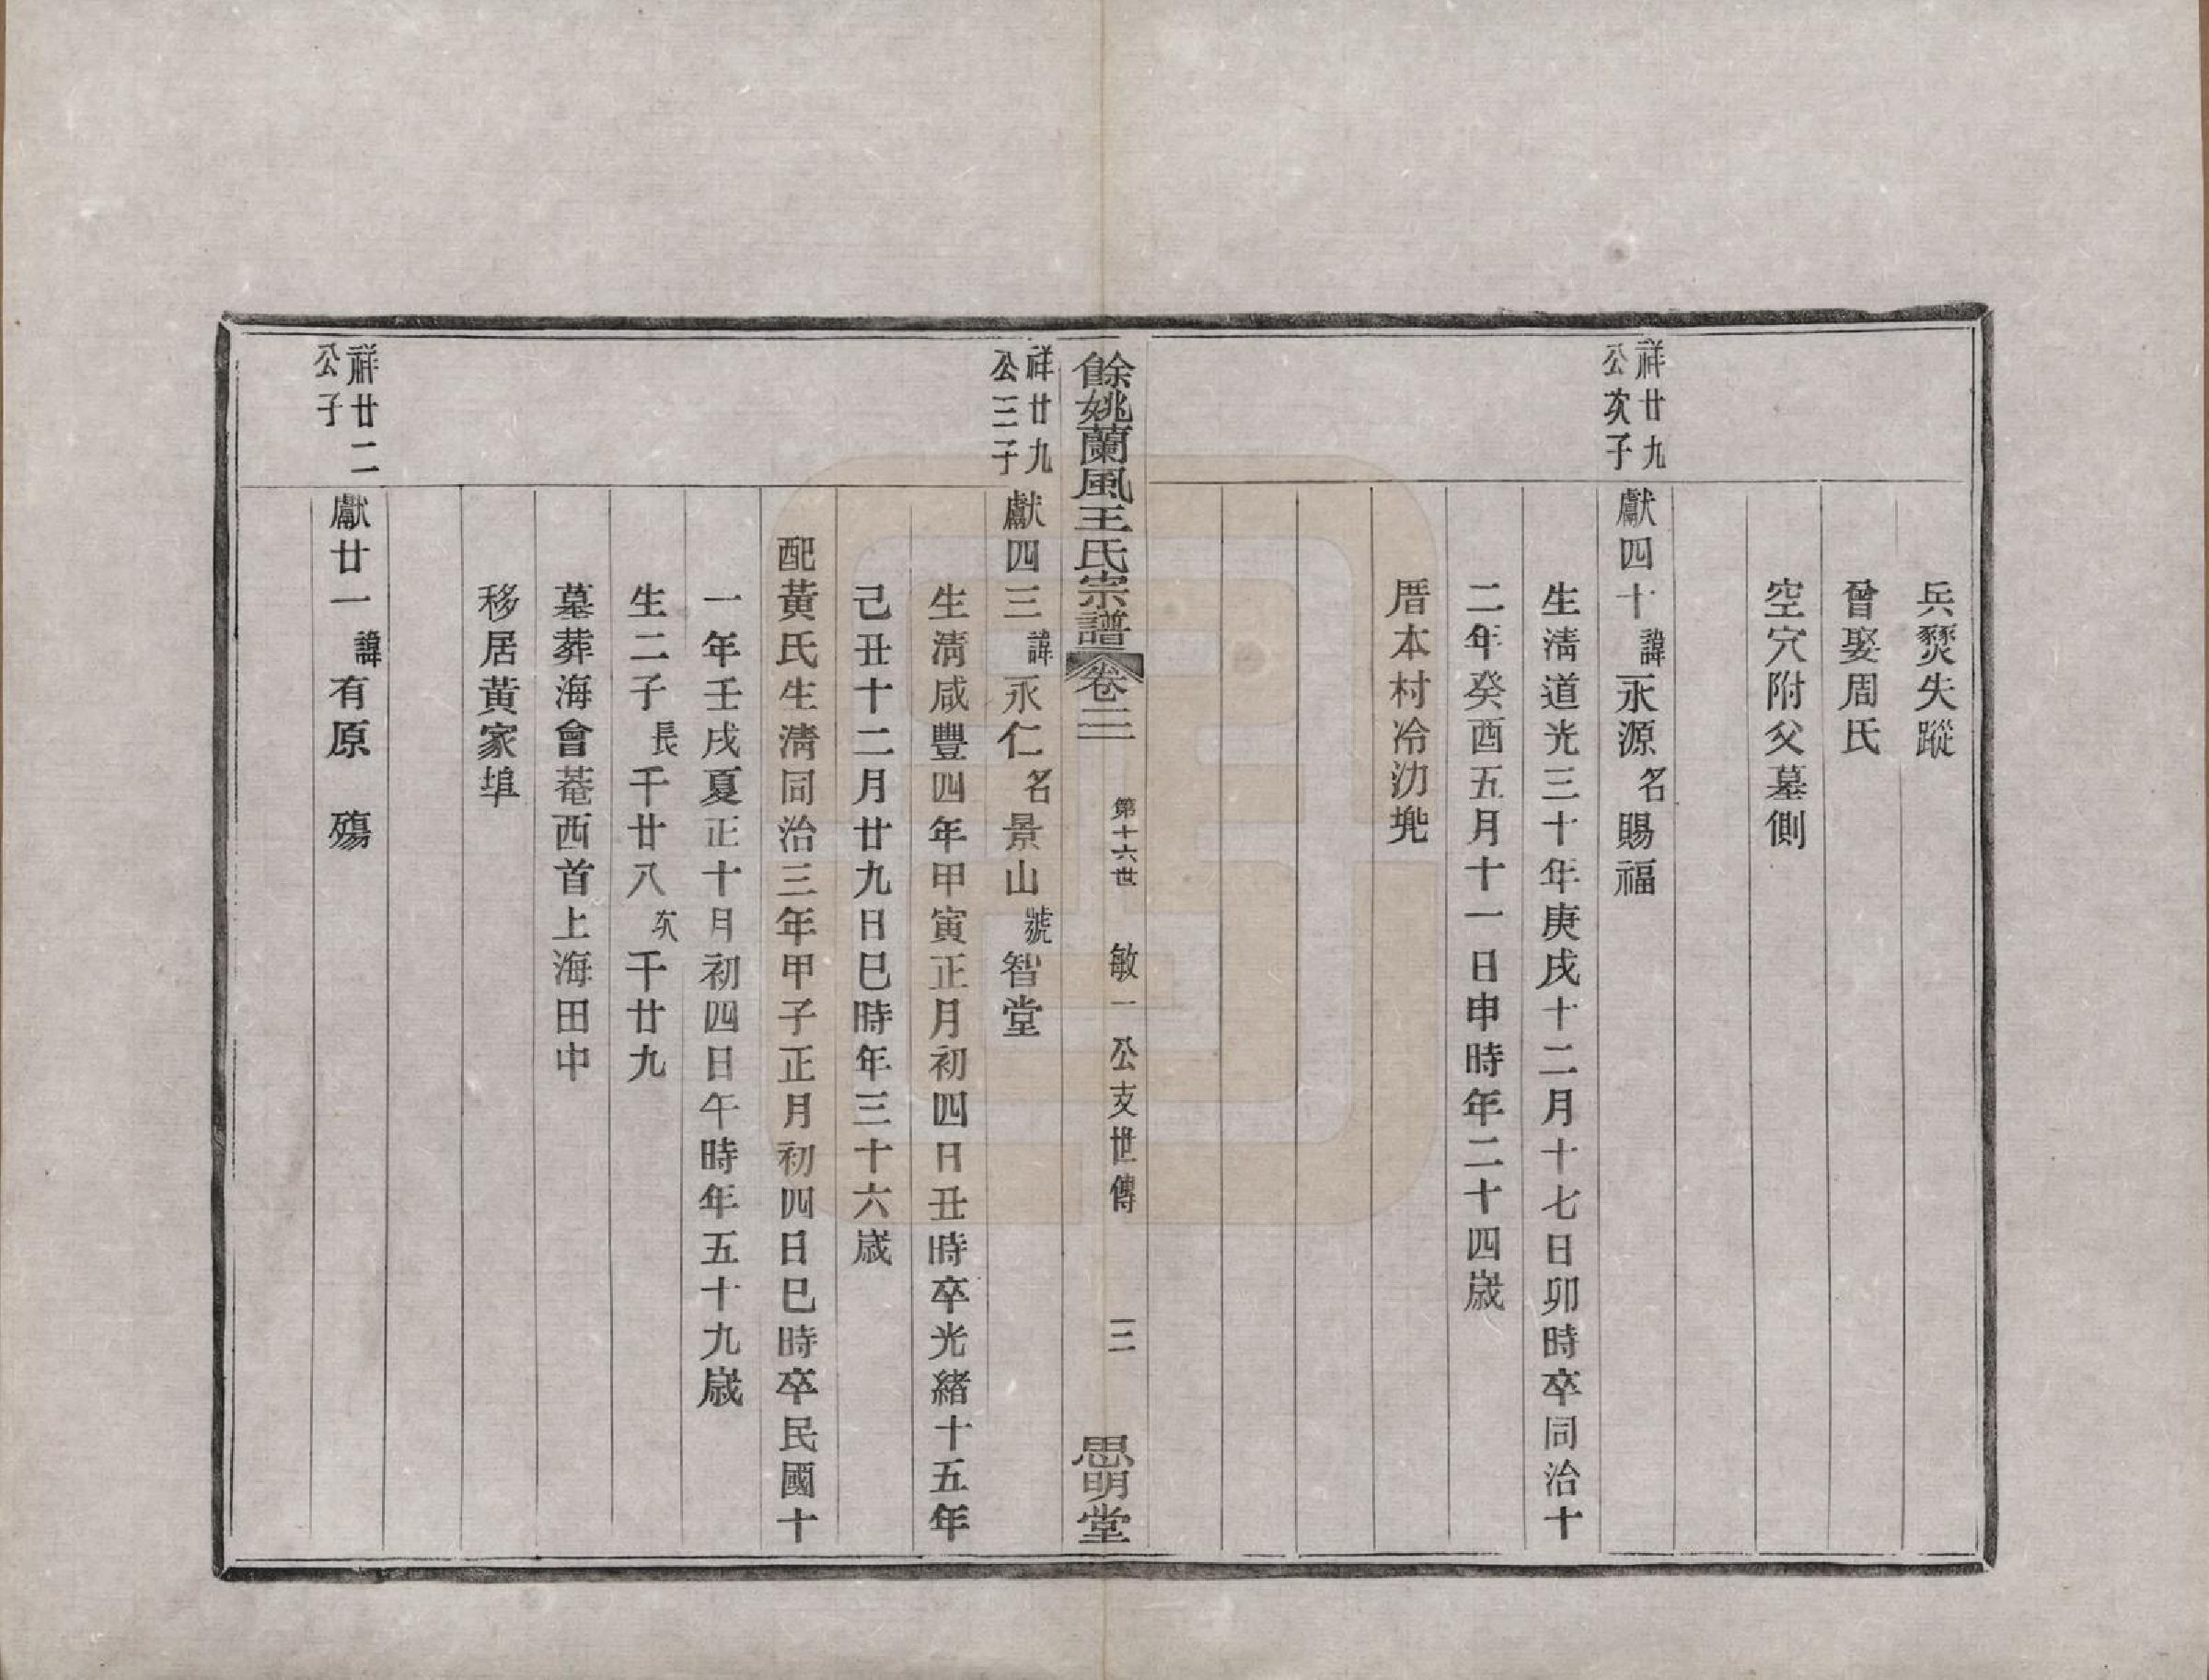 兵燹失蹤
曾娶周氏
空穴附父墓側
祥廿九
公次子
獻四十諱永源名賜福
生淸道光三十年庚戌十二月十七日卯時卒同治十
二年癸酉五月十一日申時年二十四歲
厝本村冷沏兠
餘姚蘭風王氏宗譜
卷二
第十六世
敏一公支世傳
三
思明堂
祥廿九
公三子
獻四三諱永仁名景山號智堂
生淸咸豐四年甲寅正月初四日丑時卒光緒十五年
己丑十二月廿九日巳時年三十六歲
配黃氏生淸同治三年甲子正月初四日巳時卒民國十
一年壬戌夏正十月初四日午時年五十九歲
生二子長千廿八次千廿九
墓葬海會菴西首上海田中
移居黃家埠
祥廿二
公子
獻廿一諱有原　殤